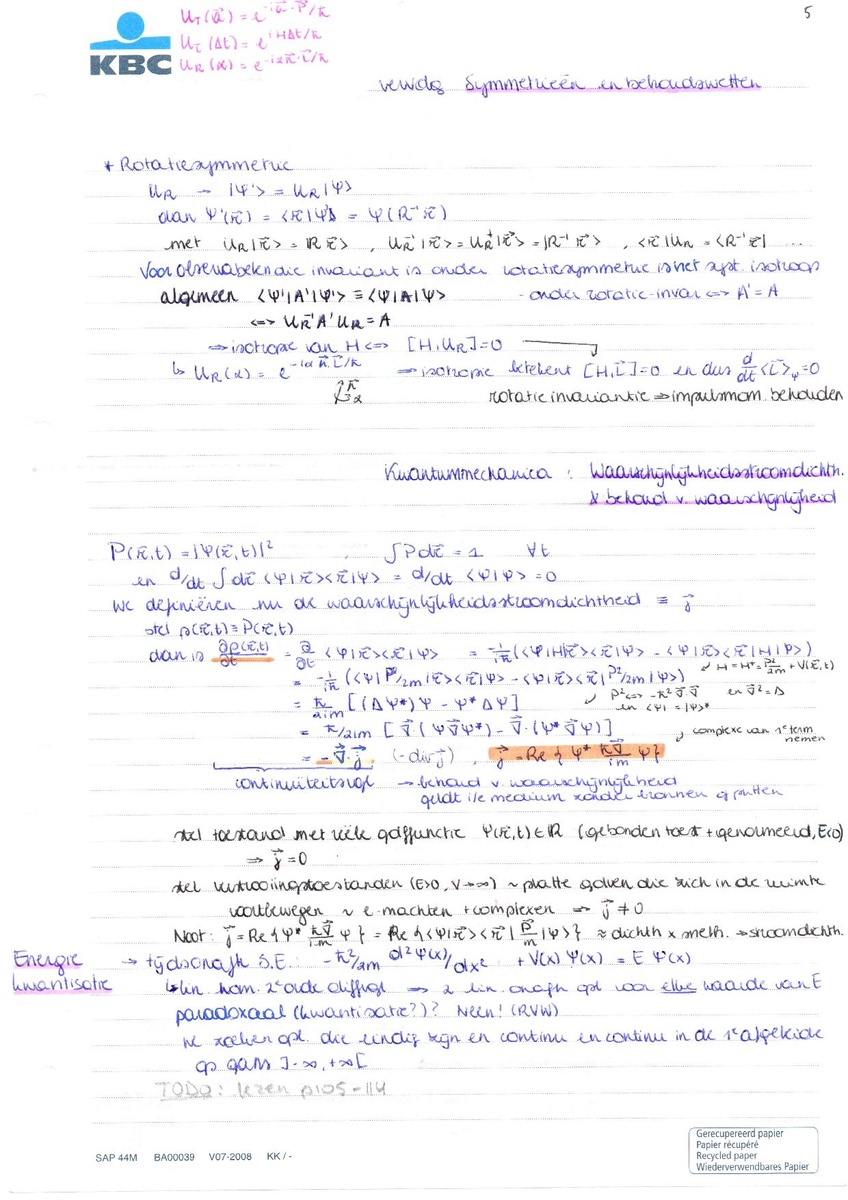 5
U_T(a⃗) = e^{-i a⃗·P⃗/ħ}
U_t(Δt) = e^{iHΔt/ħ}
U_R(α) = e^{-iα n⃗·L⃗/ħ}
KBC
vervolg Symmetrieën en behoudswetten
* Rotatiesymmetrie
U_R → |Ψ'> = U_R|Ψ>
dan Ψ'(r⃗) = <r⃗|Ψ'> = Ψ(R⁻¹ r⃗)
met U_R|r⃗> = |R r⃗> , U_R⁻¹|r⃗> = U_R⁺|r⃗> = |R⁻¹ r⃗> , <r⃗|U_R = <R⁻¹ r⃗| ...
Voor observabelen die invariant is onder rotatiesymmetrie is het syst. isotroop
algemeen <Ψ'|A'|Ψ'> ≡ <Ψ|A|Ψ> - onder rotatie-invar <=> A' = A
<=> U_R⁻¹ A' U_R = A
⇒ isotropie van H <=> [H, U_R] = 0
↳ U_R(α) = e^{-iα n⃗·L⃗/ħ} ⇒ isotropie betekent [H, L⃗] = 0 en dus d/dt <L⃗>_Ψ = 0
n⃗ α rotatie invariantie ⇒ impulsmom. behouden
Kwantummechanica : Waarschijnlijkheidsstroomdichth.
& behoud v. waarschijnlijkheid
P(r⃗,t) = |Ψ(r⃗,t)|² ∫P dr⃗ = 1 ∀t
en d/dt ∫ dr⃗ <Ψ|r⃗><r⃗|Ψ> = d/dt <Ψ|Ψ> = 0
We definiëren nu de waarschijnlijkheidsstroomdichtheid ≡ j⃗
stel ρ(r⃗,t) ≡ P(r⃗,t)
dan is ∂ρ(r⃗,t)/∂t = ∂/∂t <Ψ|r⃗><r⃗|Ψ> = -1/iħ (<Ψ|H|r⃗><r⃗|Ψ> - <Ψ|r⃗><r⃗|H|Ψ>)
↙ H = H⁺ = P²/2m + V(r⃗,t)
= -1/iħ (<Ψ|P²/2m|r⃗><r⃗|Ψ> - <Ψ|r⃗><r⃗|P²/2m|Ψ>)
↙ P² <=> -ħ² ∇⃗·∇⃗ en ∇⃗² = Δ
en <Ψ| = |Ψ>*
= ħ/2im [(ΔΨ*)Ψ - Ψ*ΔΨ]
= ħ/2im [∇⃗·(Ψ∇⃗Ψ*) - ∇⃗·(Ψ*∇⃗Ψ)]
↙ complexe van 1ᵉ term nemen
= -∇⃗·j⃗ (-div j⃗) , j⃗ = Re{Ψ* ħ∇⃗/im Ψ}
continuiteitsvgl → behoud v. waarschijnlijkheid
geldt i/e medium zonder bronnen of putten
stel toestand met reële golffunctie Ψ(r⃗,t) ∈ ℝ (gebonden toest + genormeerd, E<0)
⇒ j⃗ = 0
stel verstrooiingstoestanden (E>0, V→∞) ~ platte golven die zich in de ruimte
voortbewegen ~ e-machten + complexen ⇒ j⃗ ≠ 0
Noot: j⃗ = Re{Ψ* ħ∇⃗/im Ψ} = Re{<Ψ|r⃗><r⃗|P⃗/m|Ψ>} ≈ dichth x snelh. ⇒ stroomdichth.
Energie
kwantisatie
→ tijdsonafh S.E: -ħ²/2m d²Ψ(x)/dx² + V(x) Ψ(x) = E Ψ(x)
↳ lin. hom. 2ᵉ orde diffvgl ⇒ 2 lin. onafh opl voor elke waarde van E
paradoxaal (kwantisatie?)? Neen! (RVW)
We zoeken opl. die eindig zijn en continu en continu in de 1ᵉ afgeleide
op gans ]-∞,+∞[
TODO: lezen p105-114
SAP 44M BA00039 V07-2008 KK / -
Gerecupereerd papier
Papier récupéré
Recycled paper
Wiederverwendbares Papier